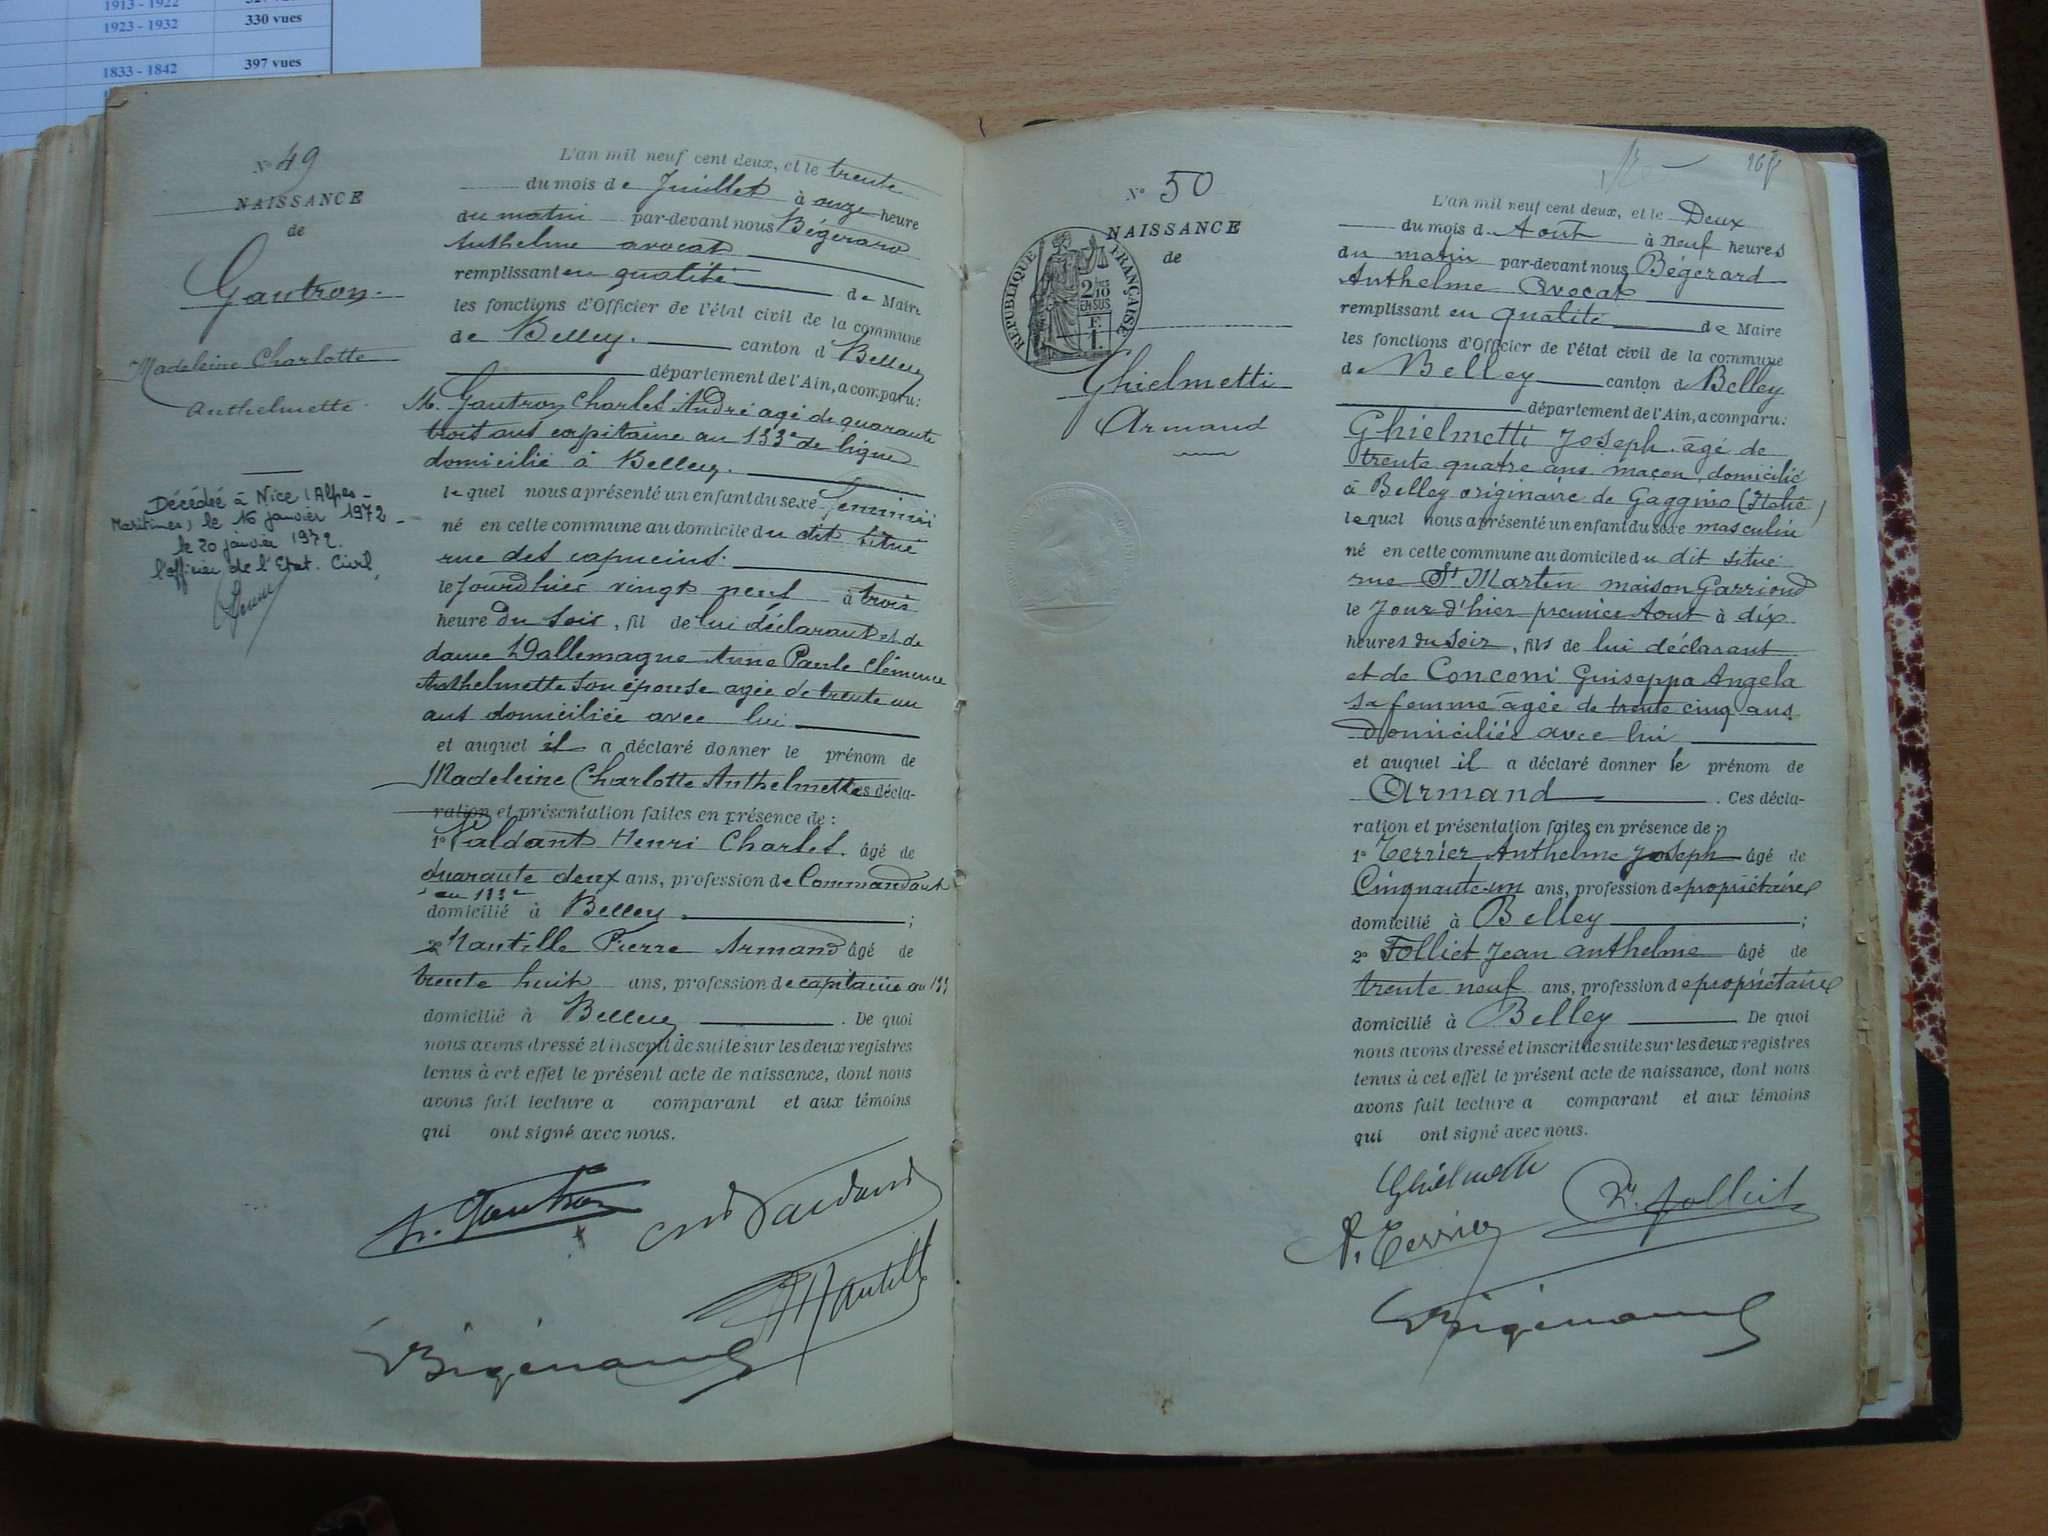 1913 - 1922
1923 - 1932 330 vues
1833 - 1842 397 vues
N° 49
NAISSANCE
de
Gautron
Madeleine Charlotte
Anthelmette
Décédée à Nice (Alpes-
Maritimes) le 16 janvier 1972
le 20 janvier 1972.
l'officier de l'Etat. Civil,
L'an mil neuf cent deux, et le trente
du mois de Juillet à onze heure
du matin par-devant nous Bégerard
Anthelme avocat
remplissant en qualité de Maire
les fonctions d'Officier de l'état civil de la commune
de Belley. canton d Belley
département de l'Ain, a comparu:
M. Gautron Charles André agé de quarante
trois ans capitaine au 133e de ligne
domicilié à Belley.
lequel nous a présenté un enfant du sexe féminin
né en cette commune au domicile du dit situé
rue des capucins.
le jourd'hier vingt neuf à trois
heure du soir, fil de lui déclarant et de
dame Dallemagne Anne Paule Clémence
Anthelmette son épouse agée de trente un
ans domiciliée avec lui
et auquel il a déclaré donner le prénom de
Madeleine Charlotte Anthelmette es décla-
ration et présentation faites en présence de :
1° Valdant Henri Charles. âgé de
quarante deux ans, profession de Commandant
au 133e
domicilié à Belley ;
2° Nautille Pierre Armand âgé de
trente huit ans, profession de capitaine au 133
domicilié à Belley . De quoi
nous avons dressé et inscrit de suite sur les deux registres
tenus à cet effet le présent acte de naissance, dont nous
avons fait lecture a comparant et aux témoins
qui ont signé avec nous.
Gautron
26
N° 50
NAISSANCE
de
REPUBLIQUE FRANÇAISE
2/10
EN SUS
Ghielmetti
Armand
L'an mil neuf cent deux, et le Deux
du mois d Aout à neuf heures
du matin par-devant nous Bégerard
Anthelme Avocat
remplissant en qualité de Maire
les fonctions d'Officier de l'état civil de la commune
de Belley canton d Belley
département de l'Ain, a comparu:
Ghielmetti Joseph. âgé de
trente quatre ans maçon, domicilié
à Belley originaire de Gaggino (Italie)
lequel nous a présenté un enfant du sexe masculin
né en cette commune au domicile du dit situé
rue St Martin maison Garriond
le Jour d'hier premier Aout à dix
heures du soir, fils de lui déclarant
et de Conconi Guiseppa Angela
sa femme âgée de trente cinq ans
domiciliée avec lui
et auquel il a déclaré donner le prénom de
Armand . Ces décla-
ration et présentation faites en présence de :
1° Terrier Anthelme Joseph âgé de
Cinquante un ans, profession de propriétaire
domicilié à Belley ;
2° Folliet Jean Anthelme âgé de
trente neuf ans, profession de propriétaire
domicilié à Belley De quoi
nous avons dressé et inscrit de suite sur les deux registres
tenus à cet effet le présent acte de naissance, dont nous
avons fait lecture a comparant et aux témoins
qui ont signé avec nous.
Ghielmetti
A. Terrier Folliet